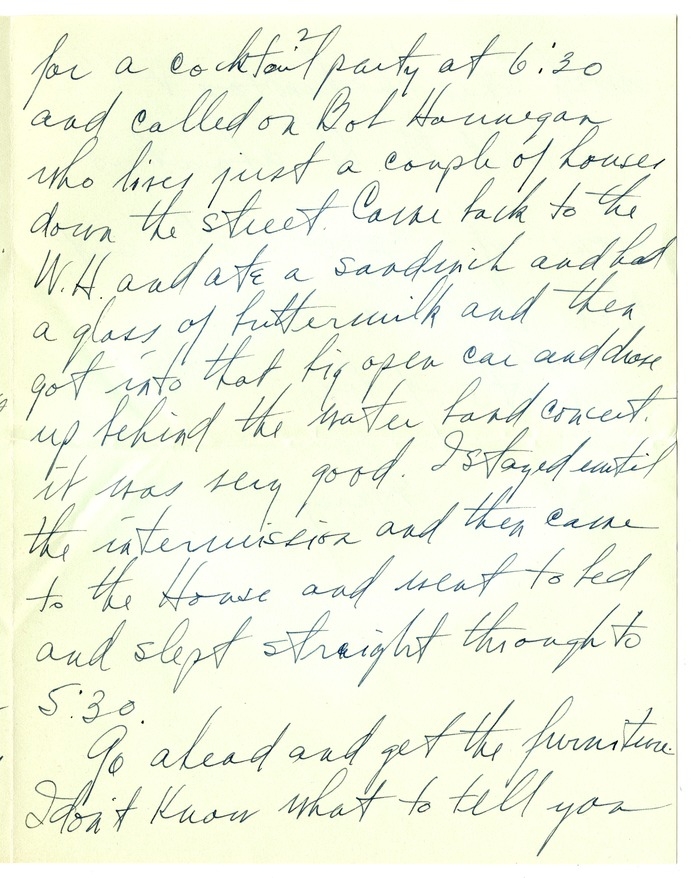 2
for a cocktail party at 6:30
and called on Bob Hannegan
who lives just a couple of houses
down the street. Came back to the
W.H. and ate a sandwich and had
a glass of buttermilk and then
got into that big open car and drove
up behind the water band concert.
it was very good. I stayed until
the intermission and then came
to the House and went to bed
and slept straight through to
5:30.
Go ahead and get the furniture.
I don't know what to tell you